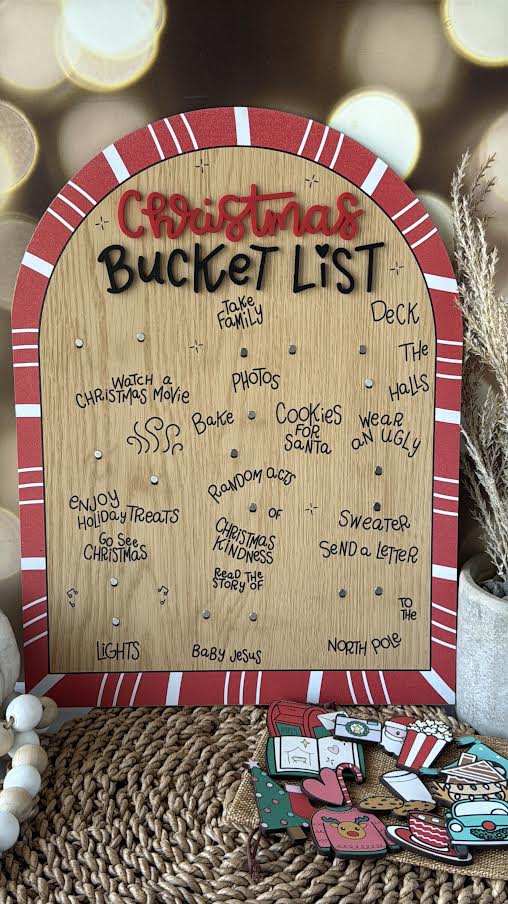 Christmas
BUCKET LiST
Take
FAMiLY
PHOTOS
DECK
THE
HALLS
WATCH a
CHRISTMAS MOVIE
Bake
COOKiES
FOR
SaNTA
WEAR
aN UGLY
SWEATER
RANDOM ACTS
OF
CHRISTMAS
KINDNESS
eNJOY
HOLiDaY TREATS
GO See
CHRISTMAS
LiGHTS
SeND a LETTER
TO
THE
NORTH POLE
ReaD THE
STORY OF
BaBY JeSuS